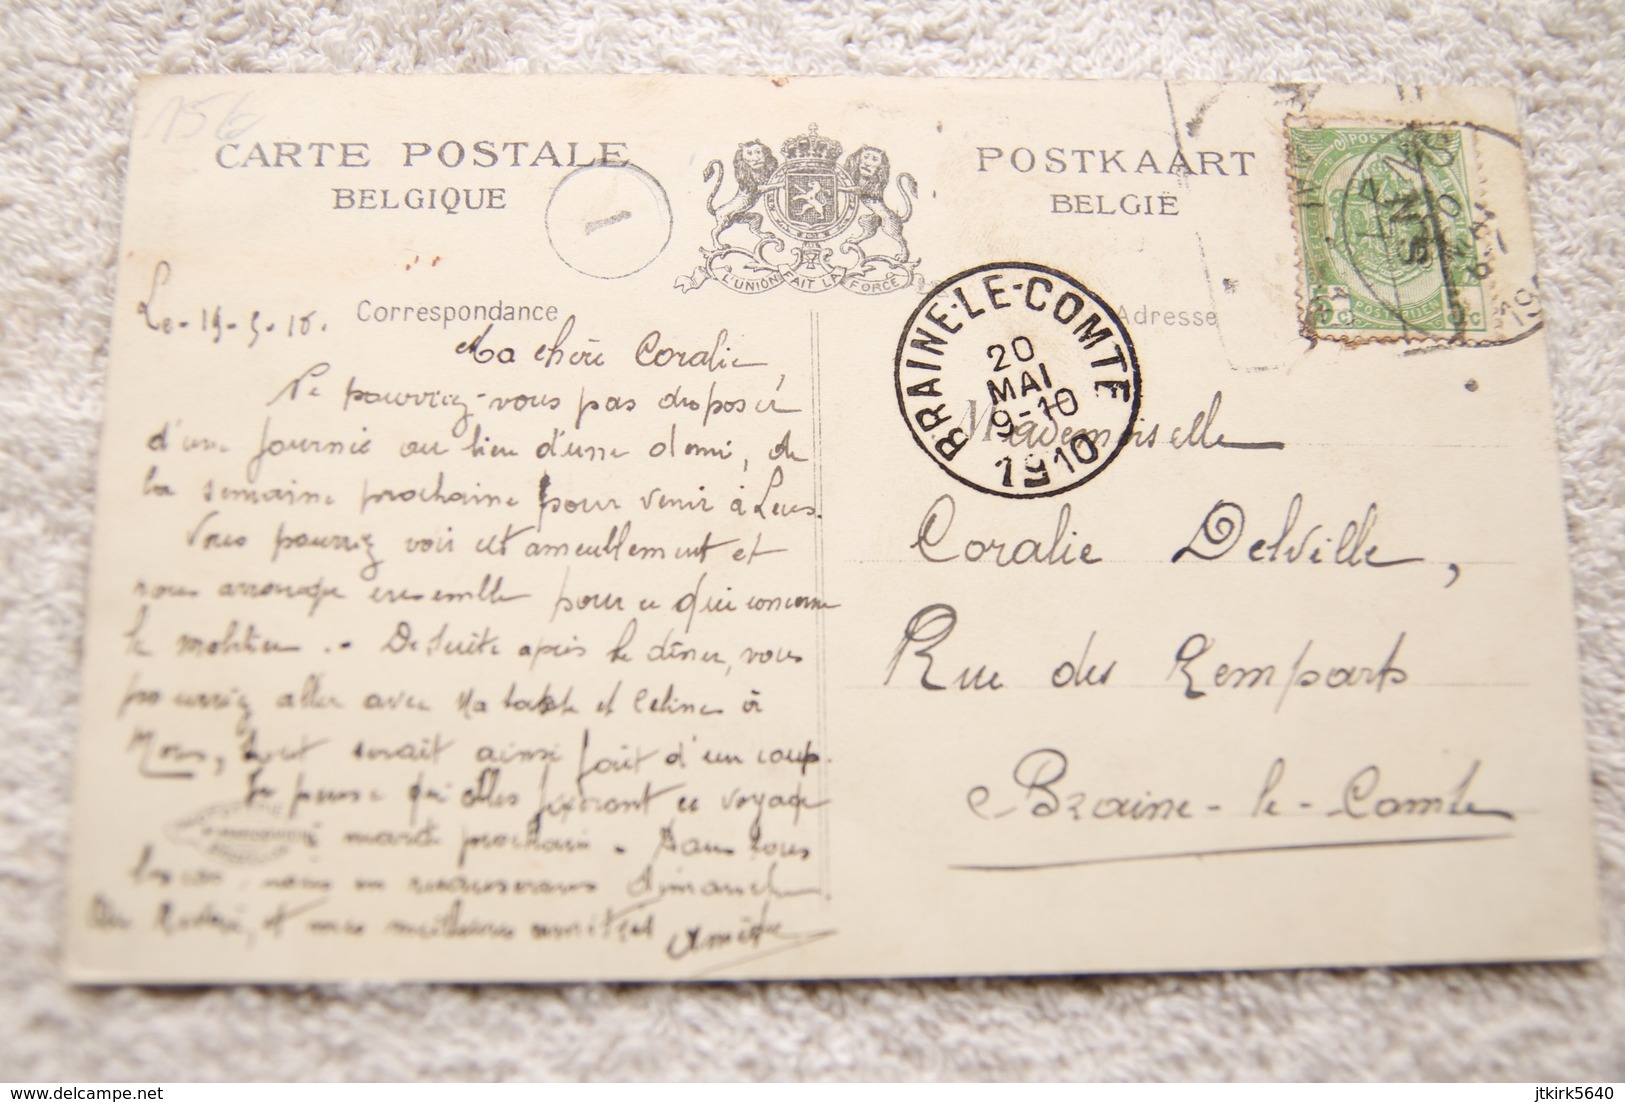 15€
CARTE POSTALE
BELGIQUE
POSTKAART
BELGIË
L'UNION FAIT LA FORCE
Correspondance
Adresse
BRAINE-LE-COMTE
20
MAI
9-10
1910
Le 19-5-10.
Ma chère Coralie,
Ne pourriez-vous pas disposer
d'une journée au lieu d'une demi, de
la semaine prochaine pour venir à Lens.
Vous pourriez voir cet ameublement et
nous arrange ensemble pour ce qui concerne
le mobilier. - De suite après le dîner, vous
pourriez aller avec Ma tante et Céline à
Mons, tout serait ainsi fait d'un coup.
Je pense qu'elles feront ce voyage
mardi prochain. Dans tous
les cas, nous en recauserons dimanche.
et mes meilleures amitiés
Mademoiselle
Coralie Delville,
Rue des Remparts
Braine-le-Comte
delcampe.net
jtkirk5640